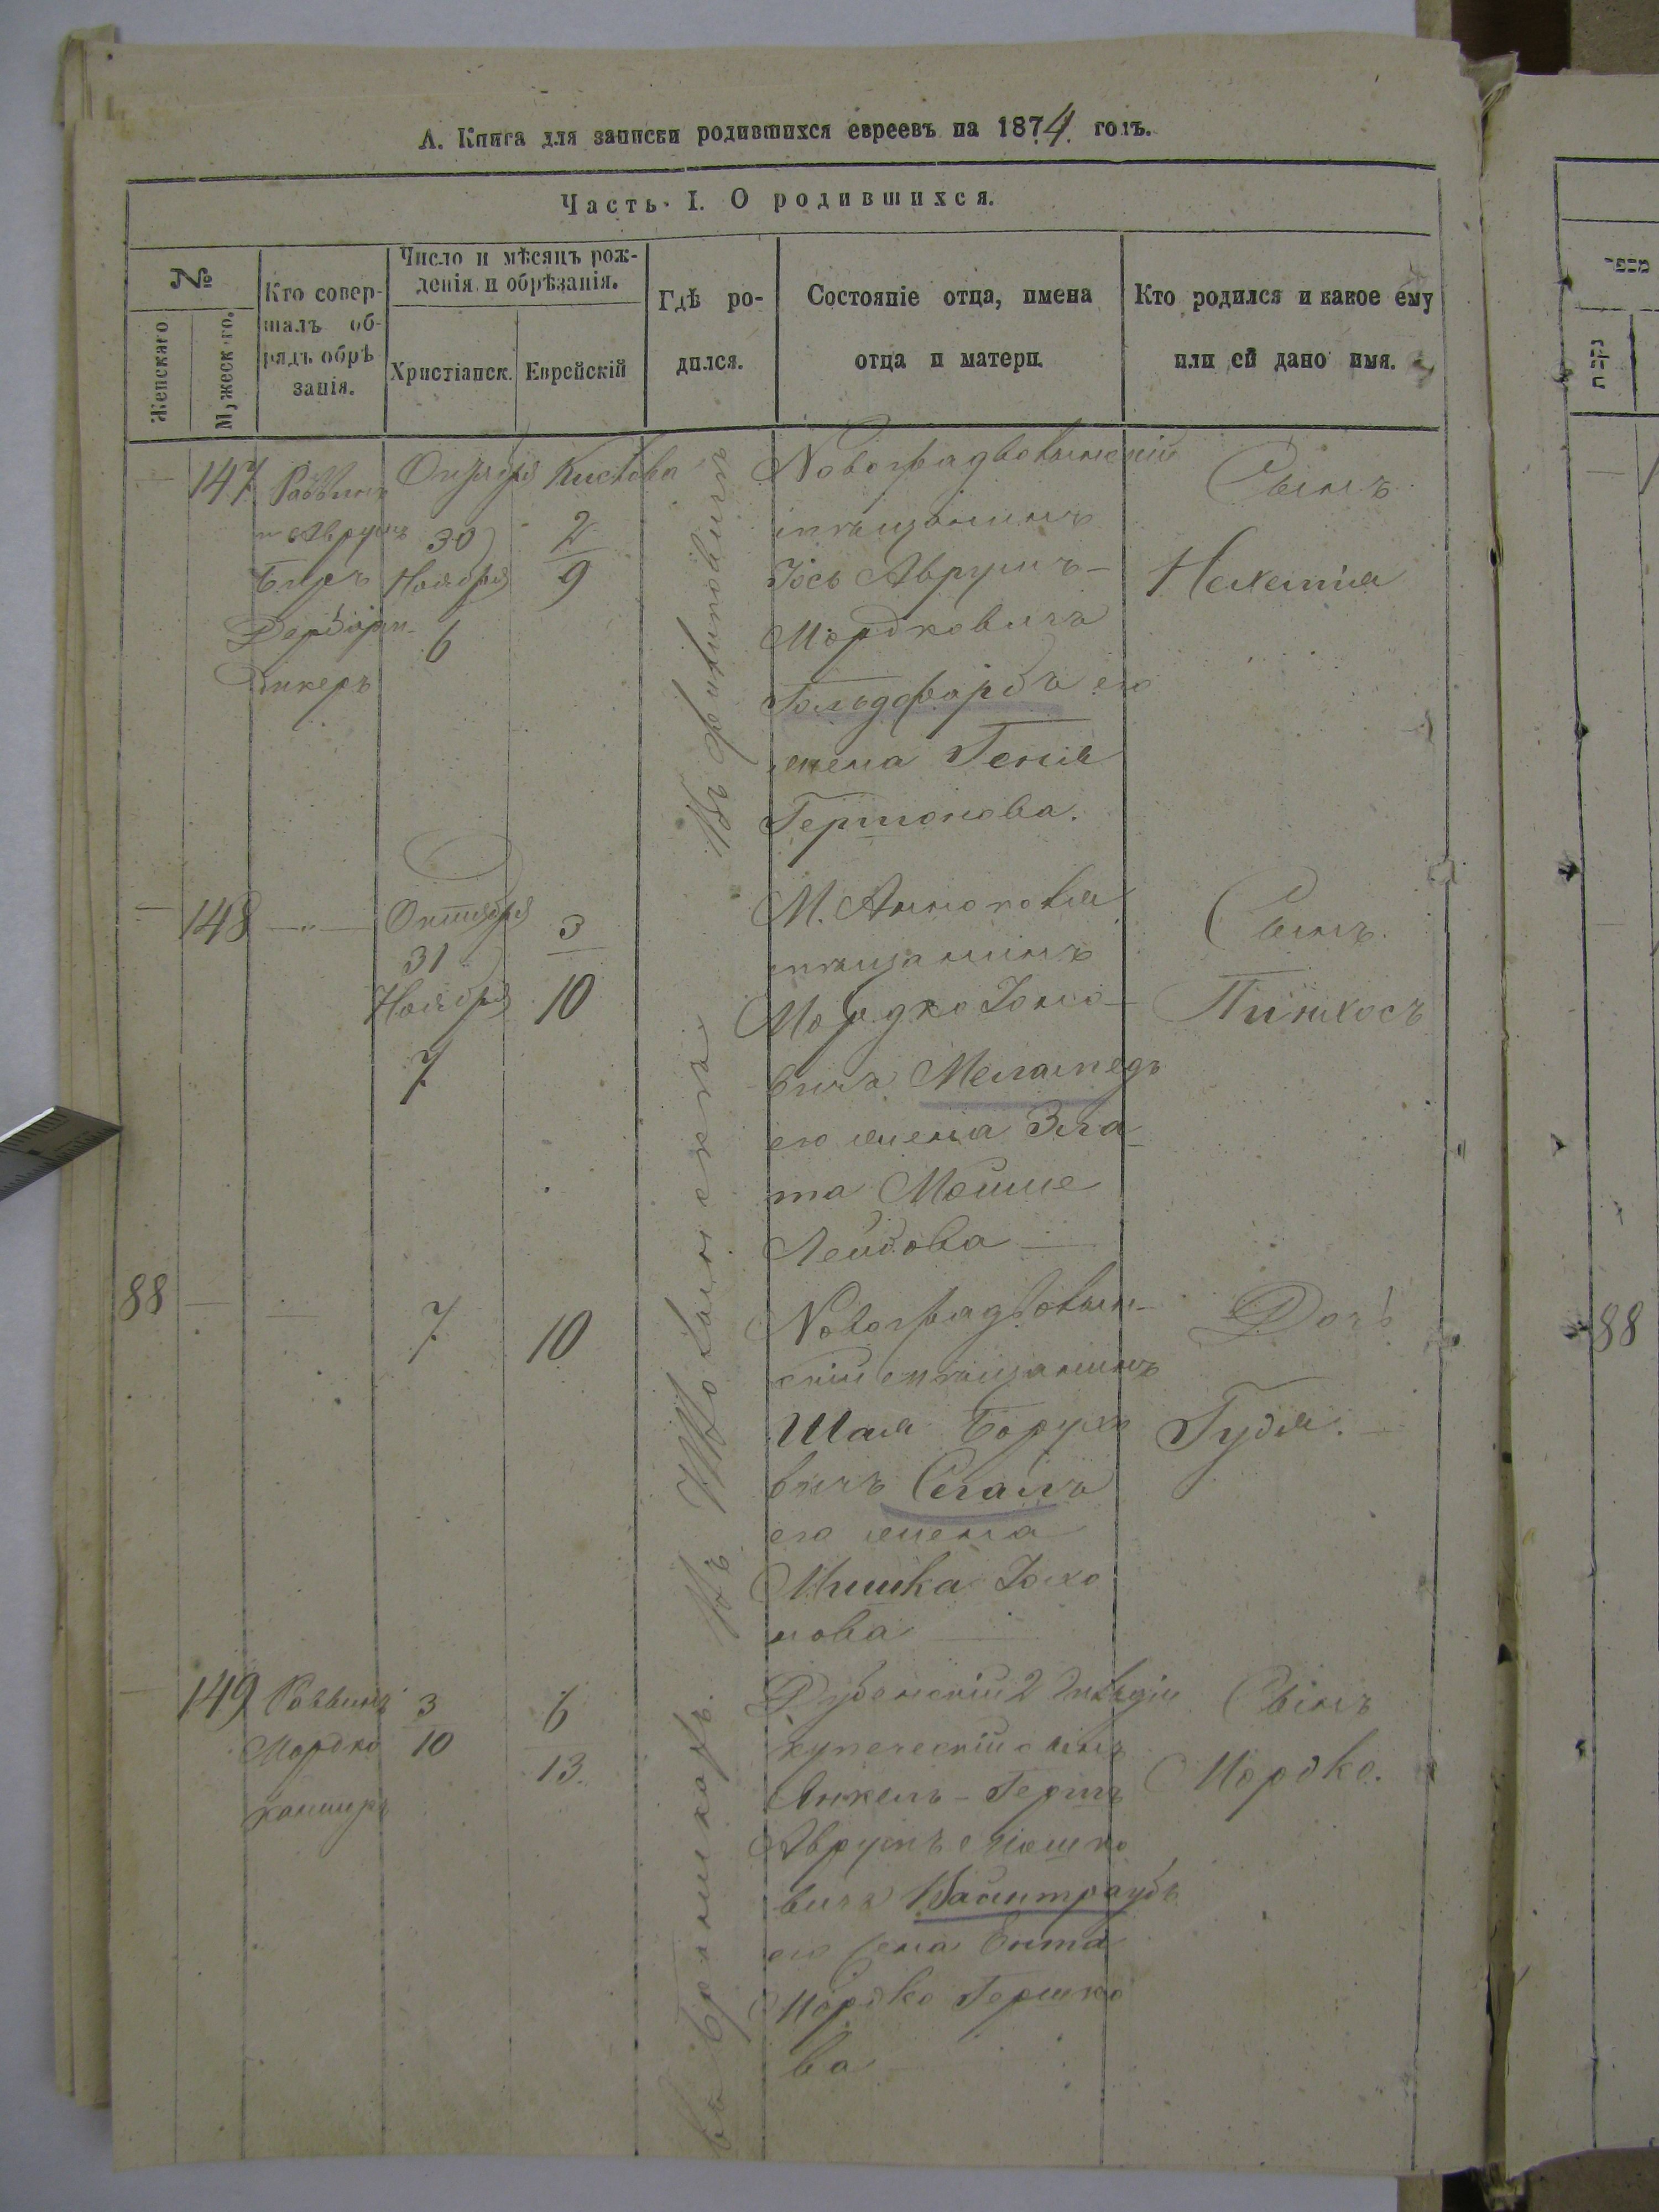 А. Книга для записки родившихся евреевъ на 1874 годъ.
Часть I. О родившихся.
№
Женскаго
Мужеского.
Кто совер-
шалъ об-
рядъ обрѣ
занія.
Число и мѣсяцъ рож-
денія и обрѣзанія.
Христіанск.
Еврейскій
Гдѣ ро-
дился.
Состояніе отца, имена
отца и матери.
Кто родился и какое ему
или ей дано имя.
מספר
נקבות
147
Раввинъ
Аврумъ
Беръ
Октября
30
Ноября
6
Кислова
2
9
Новоградволынскій
мѣщанинъ
Іось Аврумъ-
Мордковичъ
Гольдфарбъ его
жена Геня
Гершонова.
Сынъ
Нехемія
148
Октября
31
Ноября
7
3
10
мѣщанинъ
Мордко
вичъ Меламедъ
его жена Зла-
та Мошше
Лейбова
Сынъ
Пинхосъ
88
7
10
Новоградволын-
скій мѣщанинъ
Шая Борухо
вичъ Сегалъ
его жена
нова
Дочь
Гудя.
149
Раввинъ
Мордко
3
10
6
13.
Дубенскій 2 гильдіи
купеческій сынъ
Янкель-Гершъ
Аврумъ Мошко
вичъ Вайнтраубъ
его жена Ента
Мордко Гершко
ва
Сынъ
Мордко.
88